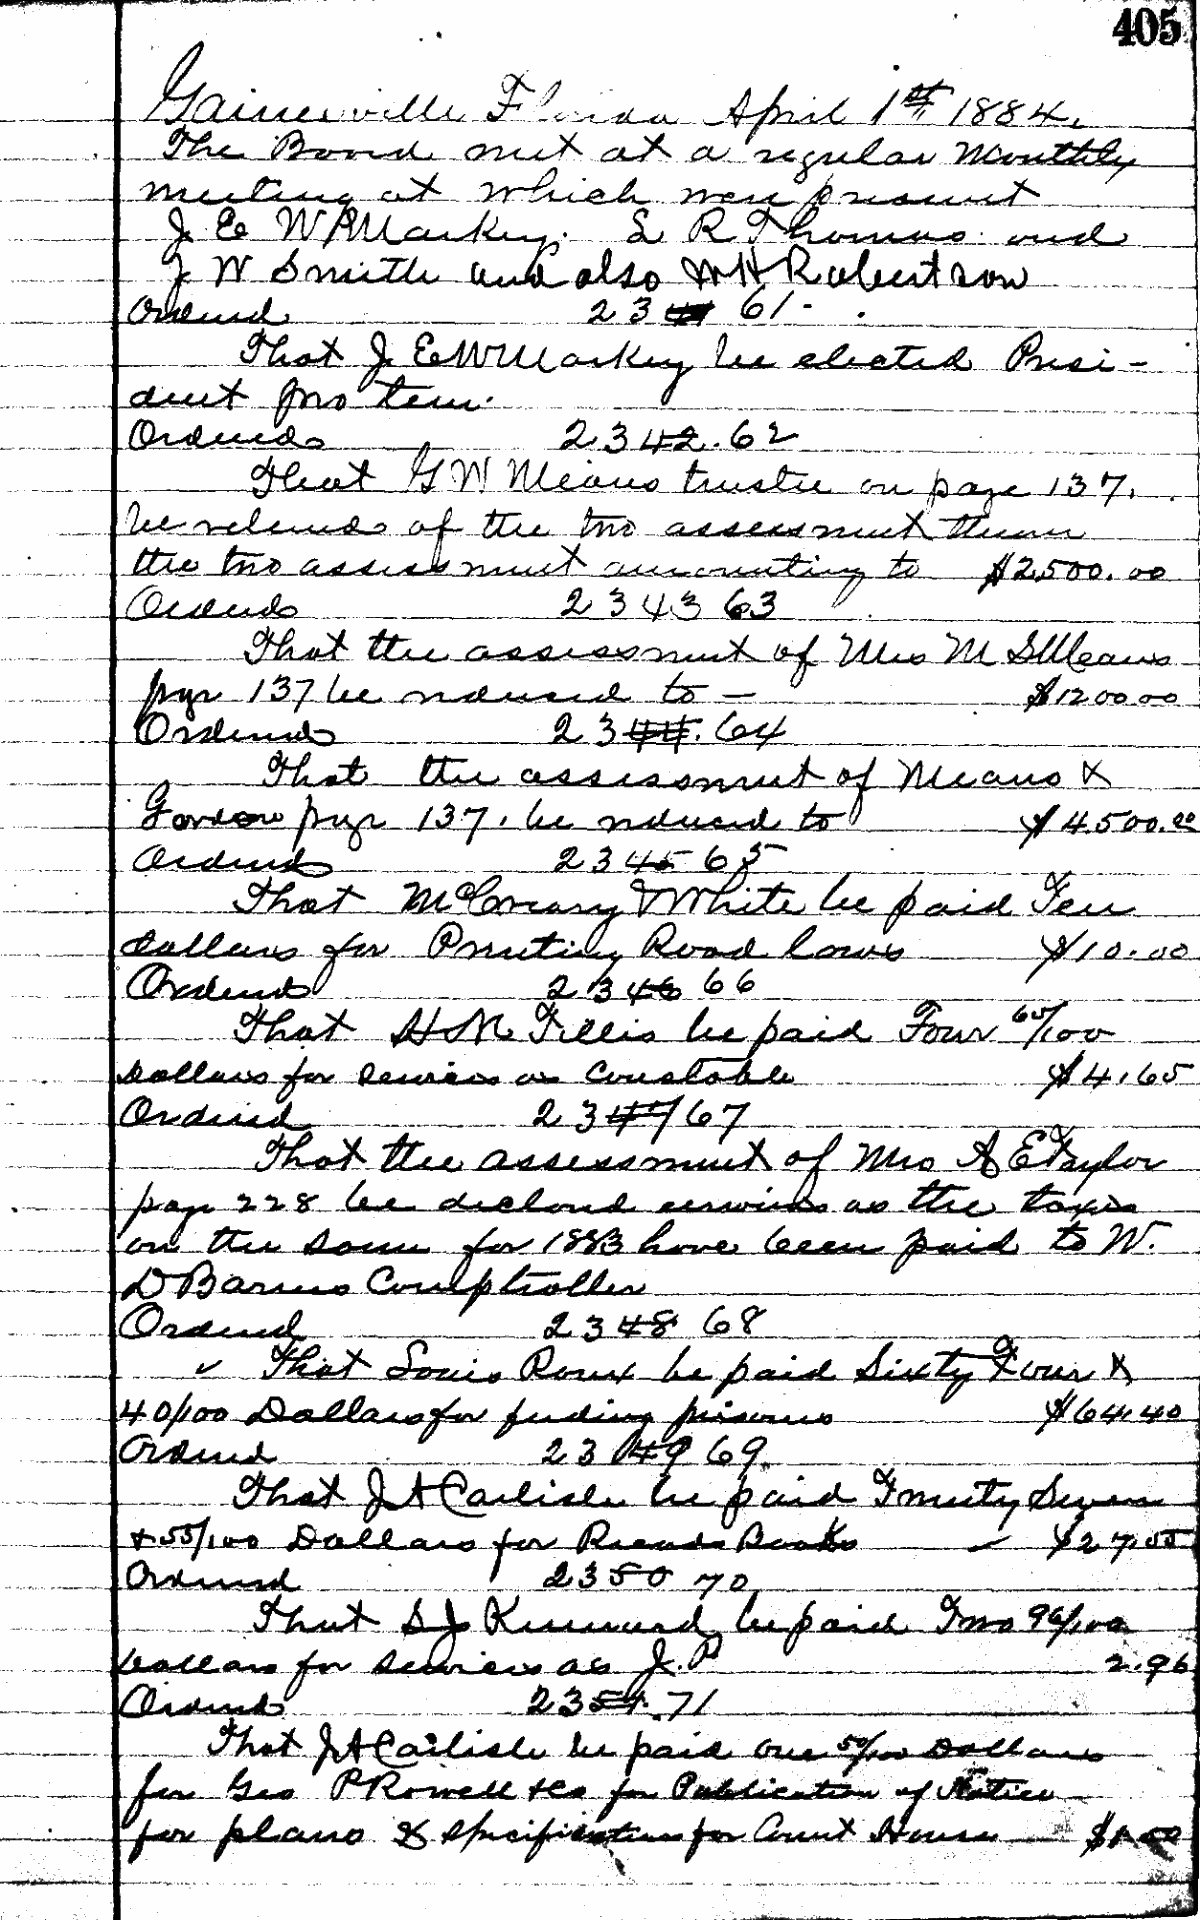 405
Gainesville Florida April 1st 1884.
The Board met at a regular Monthly
meeting at which were present
J E W McCaskey. L R Thomas and
J W Smith and also W H Robertson
Ordered 23 61.
That J E W McCaskey be elected Presi-
dent pro tem.
Ordered 2342.62
That G W Means trustee on page 137.
be relieved of the two assessment
the two assessment amounting to $2500.00
Ordered 2343 63
That the assessment of Mrs M S Means
page 137 be reduced to — $1200.00
Ordered 2344.64
That the assessment of Means &
Gordon page 137. be reduced to $4500.00
Ordered 2345 65
That McCreary & White be paid Ten
dollars for Printing Road laws $10.00
Ordered 2346 66
That H M Tillis be paid Four 65/100
Dollars for services as Constable $4.65
Ordered 2347 67
That the assessment of Mrs A E Taylor
page 228 be declared erronious as the taxes
on the same for 1883 have been paid to W.
D Barnes Comptroller
Ordered 2348 68
That Louis Roux be paid Sixty Four &
40/100 Dollars for feeding prisoners $64.40
Ordered 2349 69.
That J A Carlisle be paid Twenty Seven
+ 55/100 Dollars for Record Books $27.55
Ordered 2350 70
That S J Kennard be paid Two 96/100
Dollars for services as J.P 2.96
Ordered 2351.71
That J A Carlisle be paid one 50/100 Dollars
for Geo P Rowell & Co for Publication of Notice
for plans & specifications for Court House $1.50